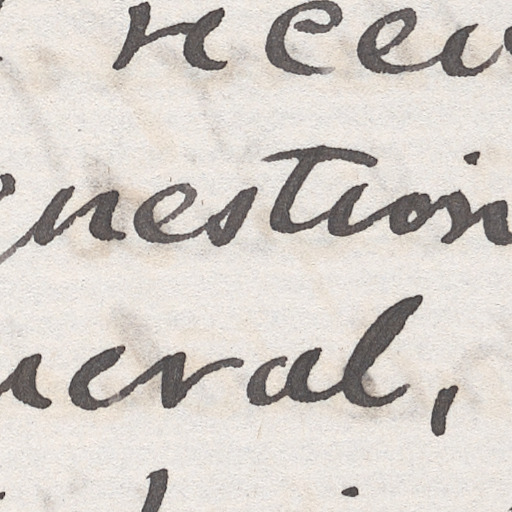 recei
question
neral,